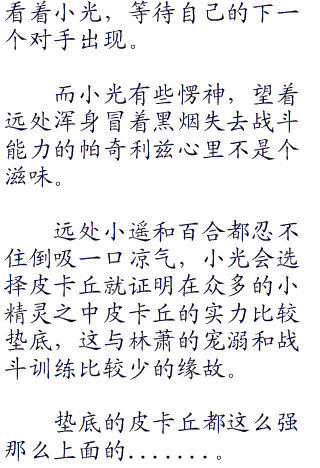 看着小光，等待自己的下一
个对手出现。
而小光有些愣神，望着
远处浑身冒着黑烟失去战斗
能力的帕奇利兹心里不是个
滋味。
远处小遥和百合都忍不
住倒吸一口凉气，小光会选
择皮卡丘就证明在众多的小
精灵之中皮卡丘的实力比较
垫底，这与林萧的宠溺和战
斗训练比较少的缘故。
垫底的皮卡丘都这么强
那么上面的.......。